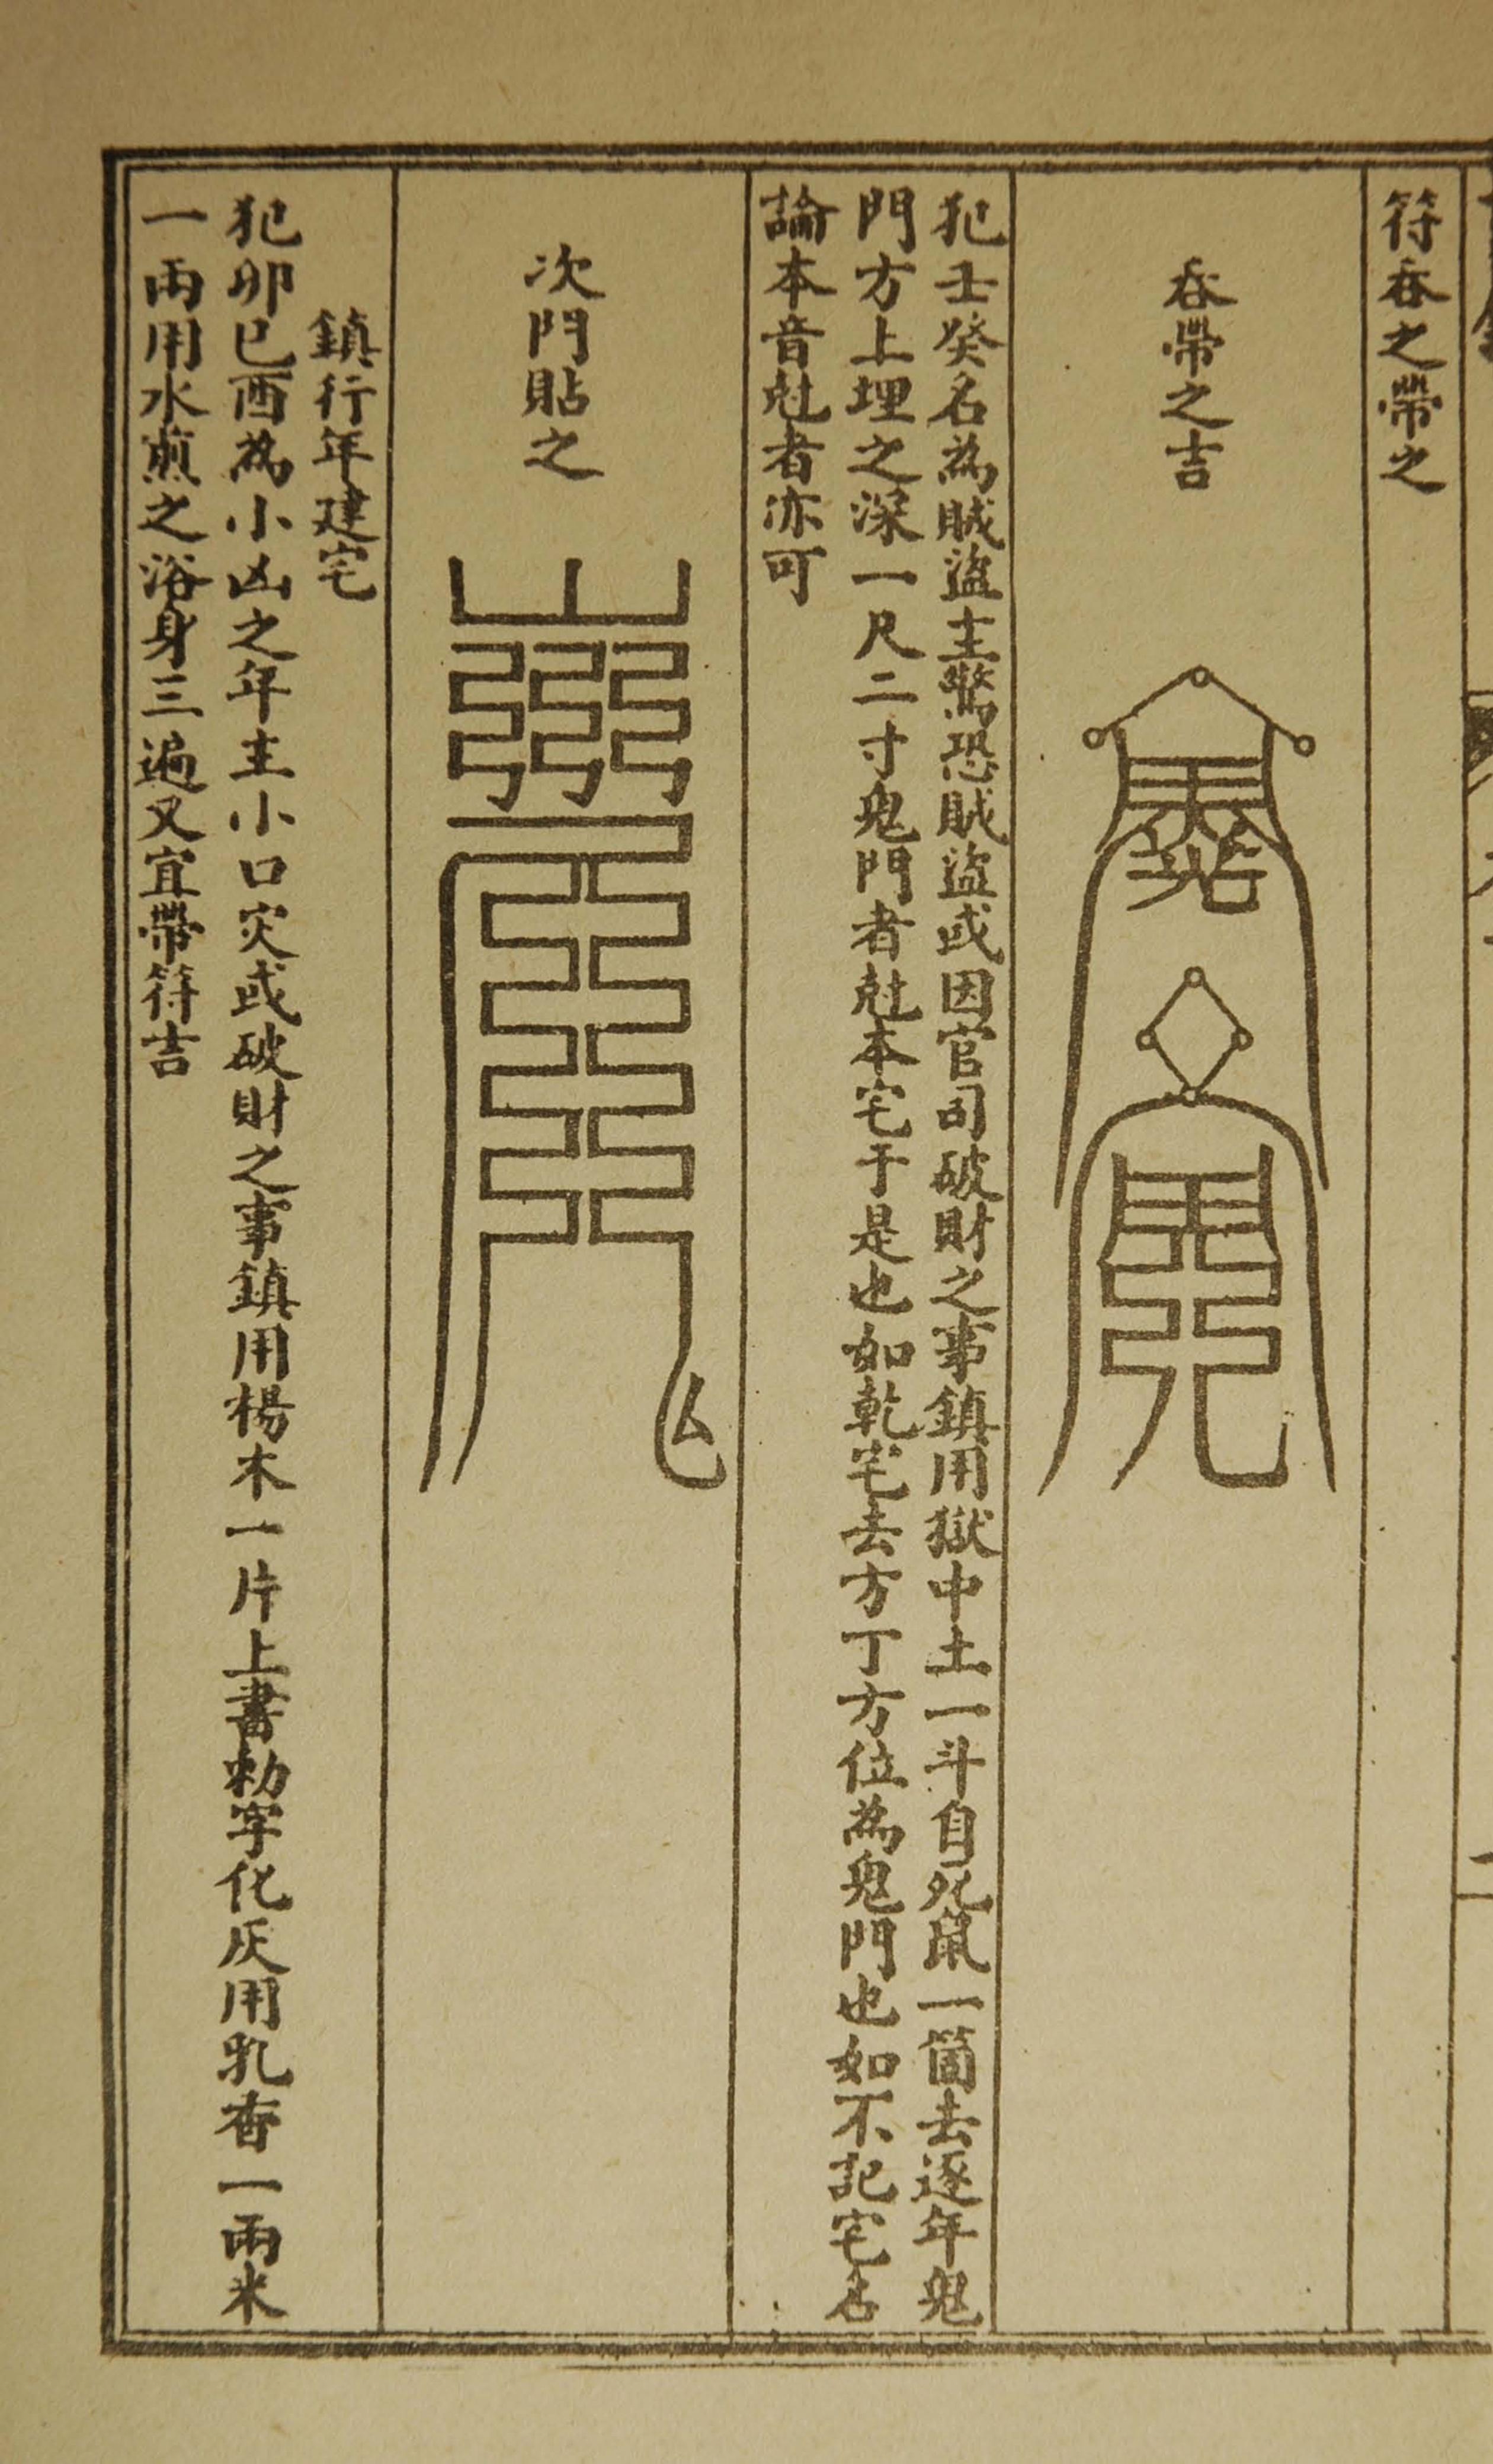 符吞之帶之
吞帶之吉
犯壬癸名為賊盜主驚恐賊盜或因官司破財之事鎮用獄中土一斗自死鼠一箇去逐年鬼
門方上埋之深一尺二寸鬼門者尅本宅于是也如乾宅去方丁方位為鬼門也如不記宅名
論本音尅者亦可
次門貼之
鎮行年建宅
犯卯巳酉為小凶之年主小口灾或破財之事鎮用楊木一片上書勑字化灰用乳香一兩米
一兩用水煎之浴身三遍又宜帶符吉